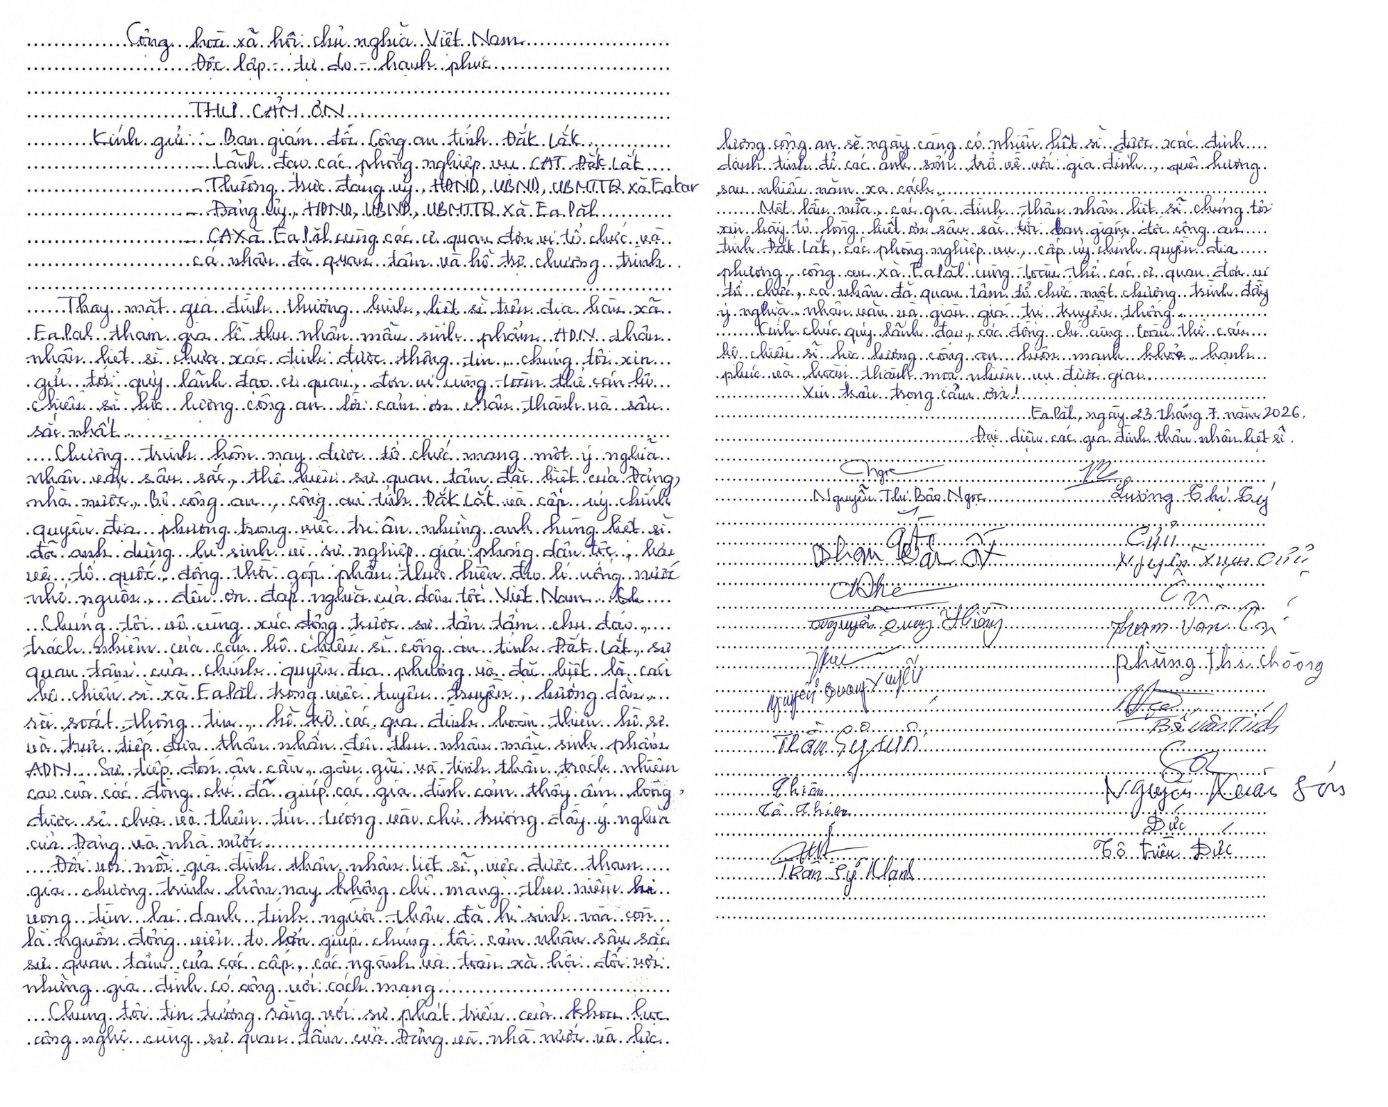 Cộng hoà xã hội chủ nghĩa Việt Nam
Độc lập - tự do - hạnh phúc
THƯ CẢM ƠN
Kính gửi: - Ban giám đốc Công an tỉnh Đắk Lắk
- Lãnh đạo các phòng nghiệp vụ CAT Đắk Lắk
- Thường trực đảng uỷ, HĐND, UBND, UBMTTQ xã Eakar
- Đảng ủy, HĐND, UBND, UBMTTQ xã Ea Păl
- CAXã Ea Păl cùng các cơ quan đơn vị tổ chức và
cá nhân đã quan tâm và hỗ trợ chương trình
Thay mặt gia đình thương binh, liệt sĩ trên địa bàn xã
Ea Păl tham gia lễ thu nhận mẫu sinh phẩm ADN thân
nhân liệt sĩ chưa xác định được thông tin, chúng tôi xin
gửi tới quý lãnh đạo cơ quan, đơn vị cùng toàn thể cán bộ
chiến sĩ lực lượng công an lời cảm ơn chân thành và sâu
sắc nhất.
Chương trình hôm nay được tổ chức mang một ý nghĩa
nhân văn sâu sắc, thể hiện sự quan tâm đặc biệt của Đảng,
nhà nước, Bộ công an, công an tỉnh Đắk Lắk và cấp uỷ chính
quyền địa phương trong việc tri ân những anh hùng liệt sĩ
đã anh dũng hi sinh vì sự nghiệp giải phóng dân tộc, bảo
vệ tổ quốc, đồng thời góp phần thực hiện đạo lí uống nước
nhớ nguồn, đền ơn đáp nghĩa của dân tộc Việt Nam.
Chúng tôi vô cùng xúc động trước sự tận tâm chu đáo,
trách nhiệm của cán bộ chiến sĩ công an tỉnh Đắk Lắk, sự
quan tâm của chính quyền địa phương và đặc biệt là cán
bộ chiến sĩ xã Ea Păl trong việc tuyên truyền, hướng dẫn,
rà soát thông tin, hỗ trợ các gia đình hoàn thiện hồ sơ
và trực tiếp đưa thân nhân đến thu nhận mẫu sinh phẩm
ADN. Sự tiếp đón ân cần, gần gũi và tinh thần trách nhiệm
cao của các đồng chí đã giúp các gia đình cảm thấy ấm lòng,
được sẻ chia và thêm tin tưởng vào chủ trương đầy ý nghĩa
của Đảng và nhà nước.
Đối với mỗi gia đình thân nhân liệt sĩ, việc được tham
gia chương trình hôm nay không chỉ mang theo niềm hi
vọng tìm lại danh tính người thân đã hi sinh mà còn
là nguồn động viên to lớn giúp chúng tôi cảm nhận sâu sắc
sự quan tâm của các cấp, các ngành và toàn xã hội đối với
những gia đình có công với cách mạng.
Chúng tôi tin tưởng rằng với sự phát triển của khoa học
công nghệ cùng sự quan tâm của Đảng và nhà nước và lực
lượng công an sẽ ngày càng có nhiều liệt sĩ được xác định
danh tính để các anh sớm trở về với gia đình, quê hương
sau nhiều năm xa cách.
Một lần nữa, các gia đình thân nhân liệt sĩ chúng tôi
xin bày tỏ lòng biết ơn sâu sắc tới ban giám đốc công an
tỉnh Đắk Lắk, các phòng nghiệp vụ, cấp ủy chính quyền địa
phương, công an xã Ea Păl cùng toàn thể các cơ quan đơn vị
tổ chức, cá nhân đã quan tâm tổ chức một chương trình đầy
ý nghĩa nhân văn và giàu giá trị truyền thống.
Kính chúc quý lãnh đạo, các đồng chí cùng toàn thể cán
bộ chiến sĩ lực lượng công an luôn mạnh khỏe, hạnh
phúc và hoàn thành mọi nhiệm vụ được giao.
Xin trân trọng cảm ơn!
Ea Păl, ngày 23 tháng 7 năm 2026.
Đại diện các gia đình thân nhân liệt sĩ.
Ngọc
Nguyễn Thị Bảo Ngọc Lương Thị Tý
Phan Văn Ất Nguyễn Xuân Cửu
Nguyễn Quang Thiềng Phạm Văn
Nguyễn Quang Phùng Thị Chòong
Trần Sỹ Bế Văn Tính
Thiện
Tô Thiện Nguyễn Xuân Sơn
Đức
Trần Sỹ Mạnh Tô Triều Đức